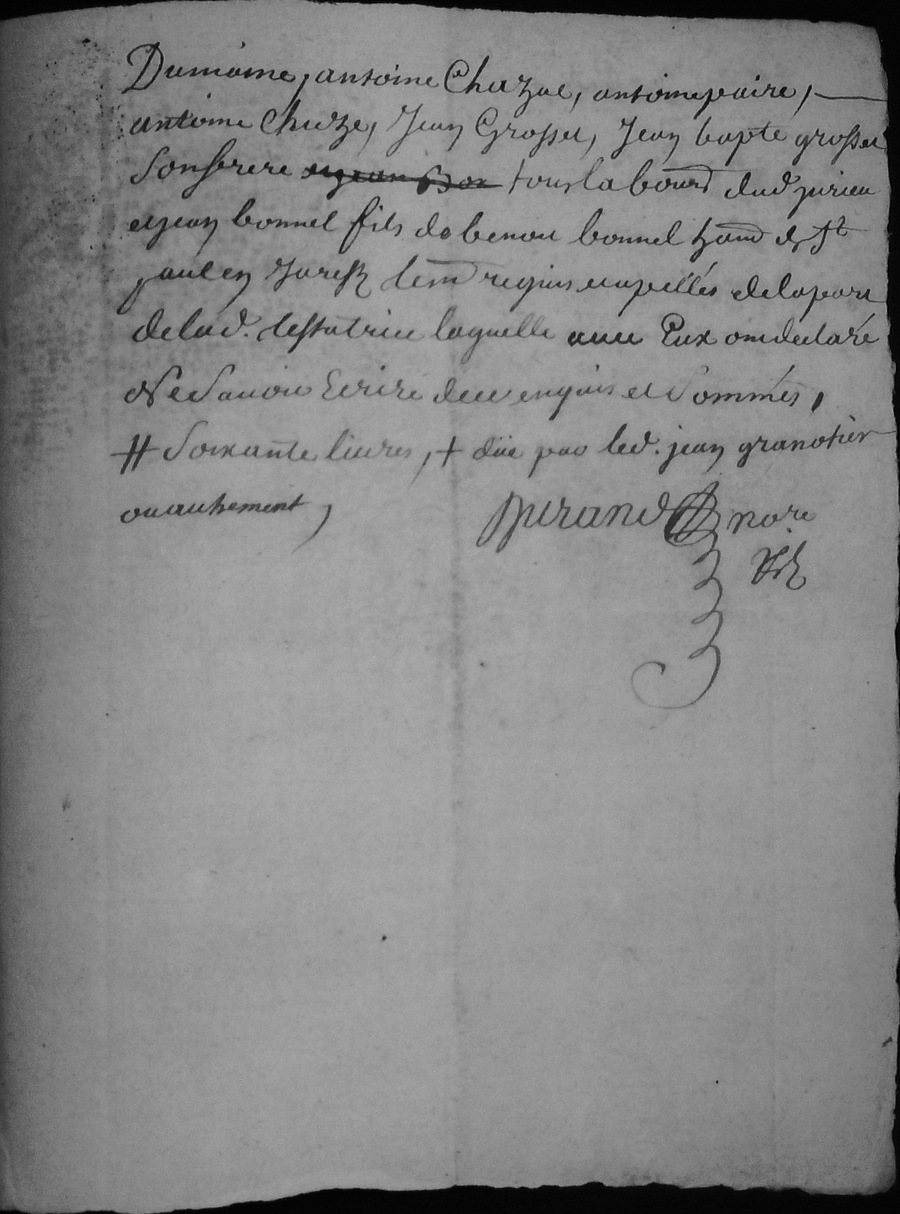 Dumoine, antoine Chazal, antoine paire,
antoine Cheze, Jean Grosset, Jean bapte grosset
Son frere et jean Bon tous labourd dud jurieu
et jean bonnel fils de benoit bonnel hant de St
paul en Jarest tem requis et apellés de la part
de lad. testatrice laquelle avec Eux ont declaré
Ne Savoir Ecrire de ce enquis et Sommés,
# Soixante livres, + düe par led. jean granotier
ou autrement,
Durand nore